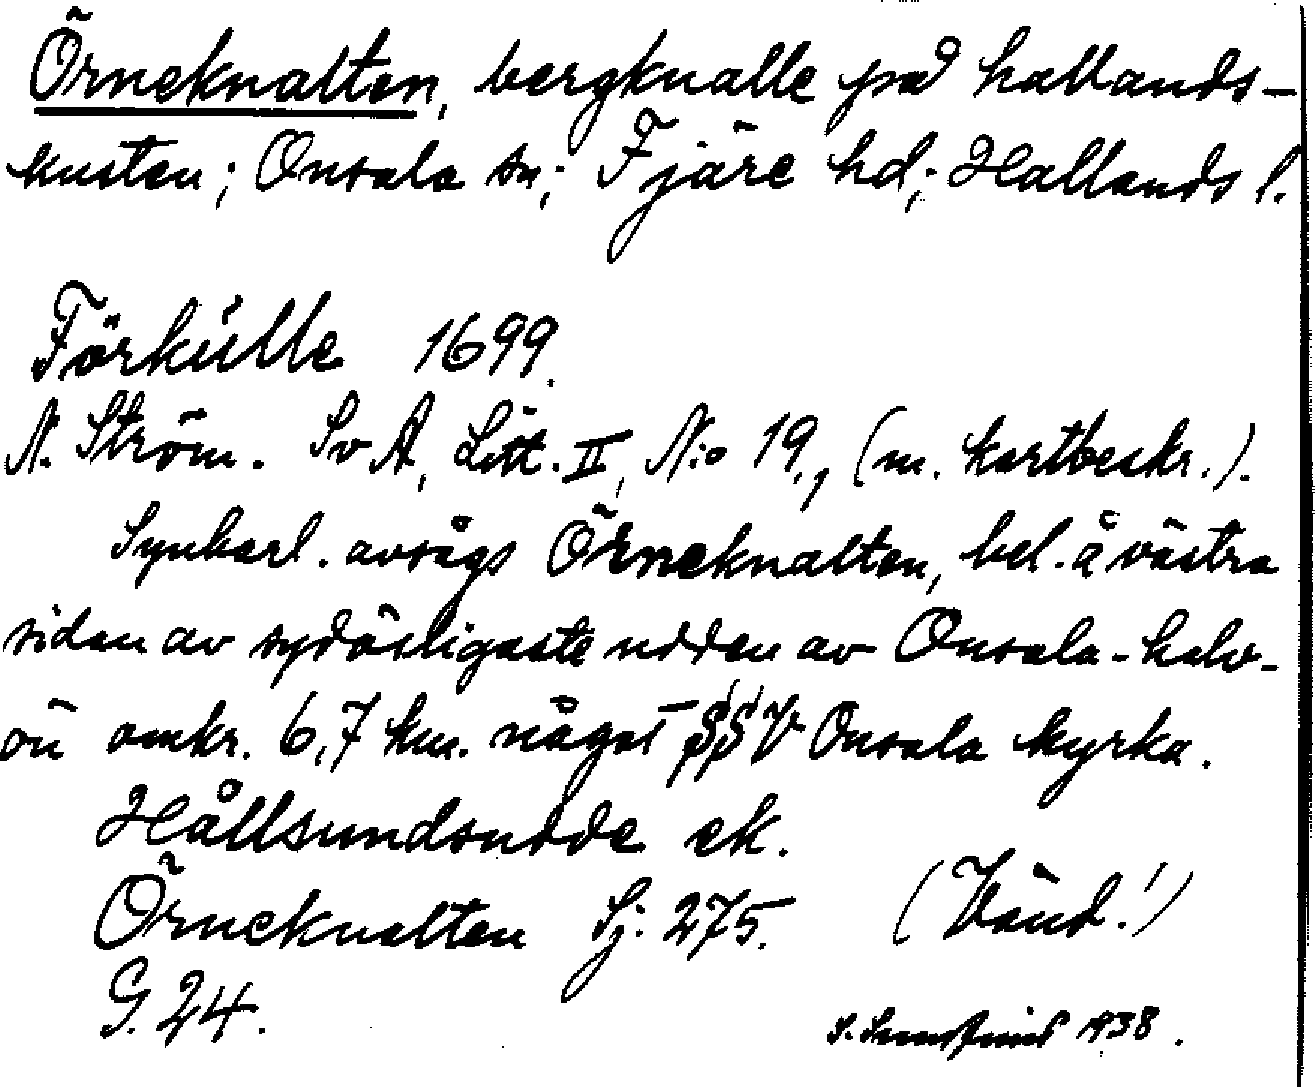 Örneknalten, bergknalle på hallands-
kusten; Onsala sn; Fjäre hd; Hallands l.
Förkülle 1699.
N. Ström. SvA, Litt. II, N:o 19., (m. kartbeskr.).
Synbarl. avsågs Örneknalten, bel. å västra
sidan av sydösligaste udden av Onsala-halv-
ön omkr. 6,7 km. något SSV Onsala kyrka.
Hållsundsudde ek.
Örneknalten Sj. 275. (Vänd!)
G. 24.
S. 1938.